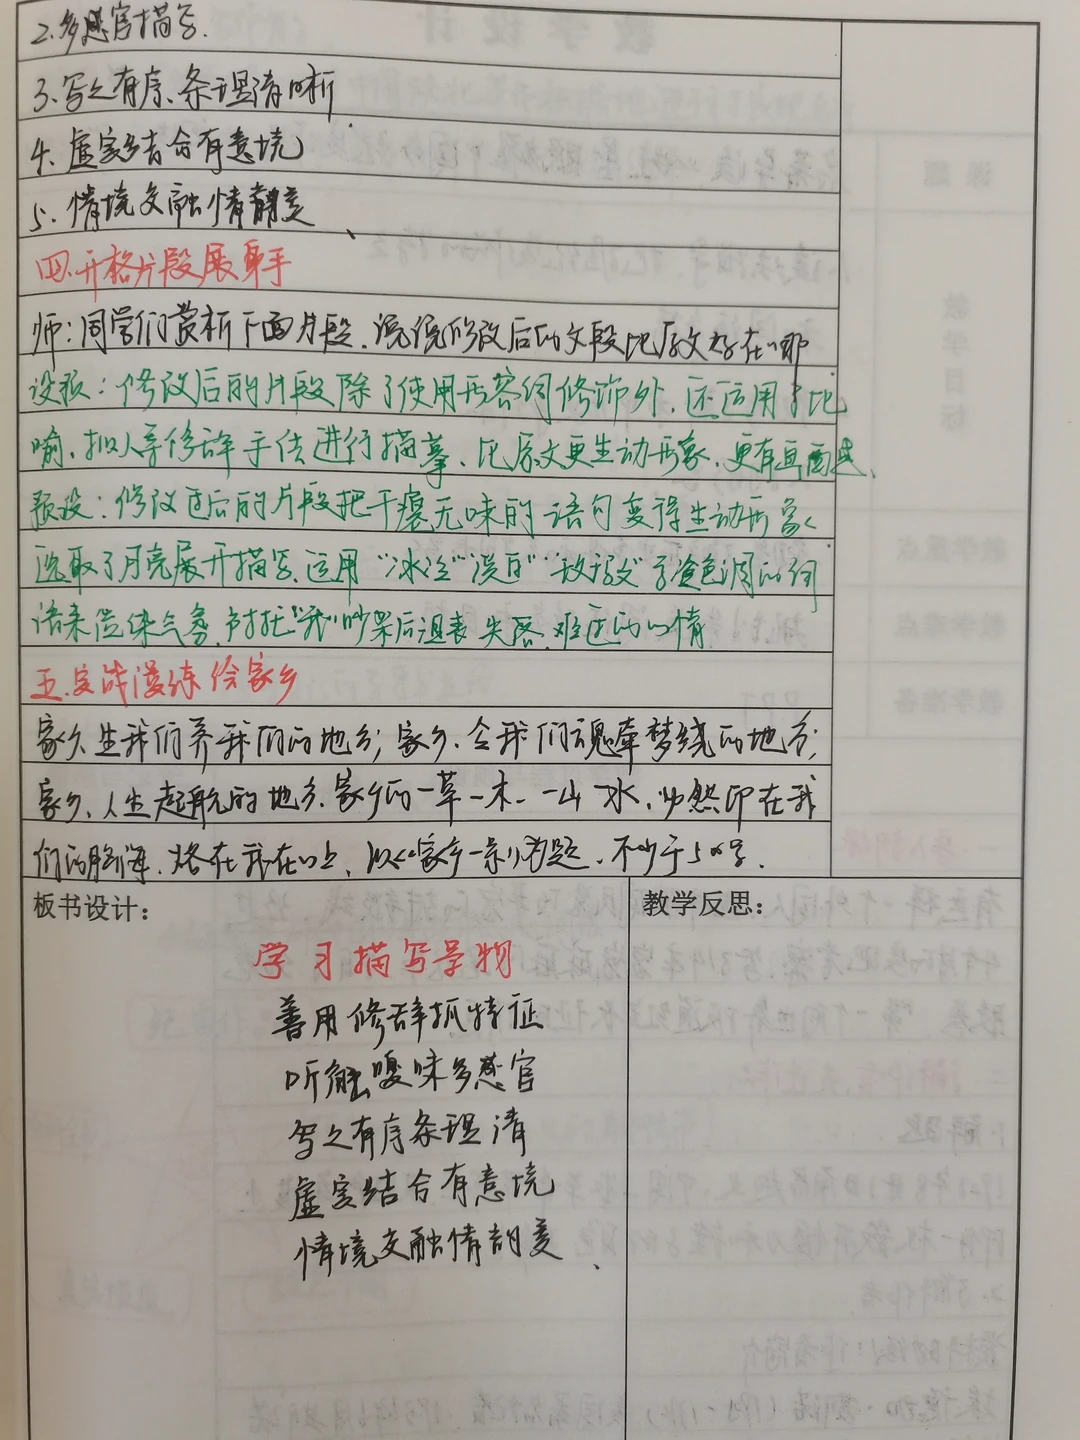 2.多感官描写.
3.写之有序、条理清晰
4.虚实结合有意境
5.情境交融情
四.升格片段展身手
师:同学们赏析下面片段.说说修改后的文段比原文好在哪
设:修改后的片段除了使用形容词修饰外,还运用了比
喻、拟人等修辞手法进行描摹、比原文更生动形象、更有画面
预设:修改过后的片段把干瘪无味的语句变得生动形象
选取了月亮展开描写.运用“冰冷”“”“”等色调的词
语来渲染气氛.衬托“我”吵架后沮丧 失落.难过的心情
五.实战演练绘家乡
家乡.生我们养我们的地方;家乡.令我们魂牵梦绕的地方;
家乡、人生起航的地方.家乡的一草一木、一山一水,必然印在我
们的脑海.烙在我在心上、以《家乡一景》为题、不少于500字.
板书设计:
教学反思:
学习描写景物
善用修辞抓特征
听触嗅味多感官
写之有序条理清
虚实结合有意境
情境交融情